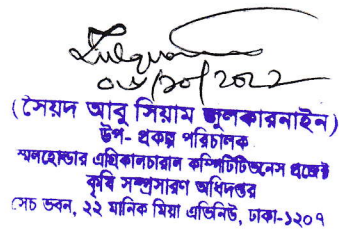 ০৬/১০/২০২২
(সৈয়দ আবু সিয়াম জুলকারনাইন)
উপ- প্রকল্প পরিচালক
স্মলহোল্ডার এগ্রিকালচারাল কম্পিটিটিভনেস প্রজেক্ট
কৃষি সম্প্রসারণ অধিদপ্তর
সেচ ভবন, ২২ মানিক মিয়া এভিনিউ, ঢাকা-১২০৭